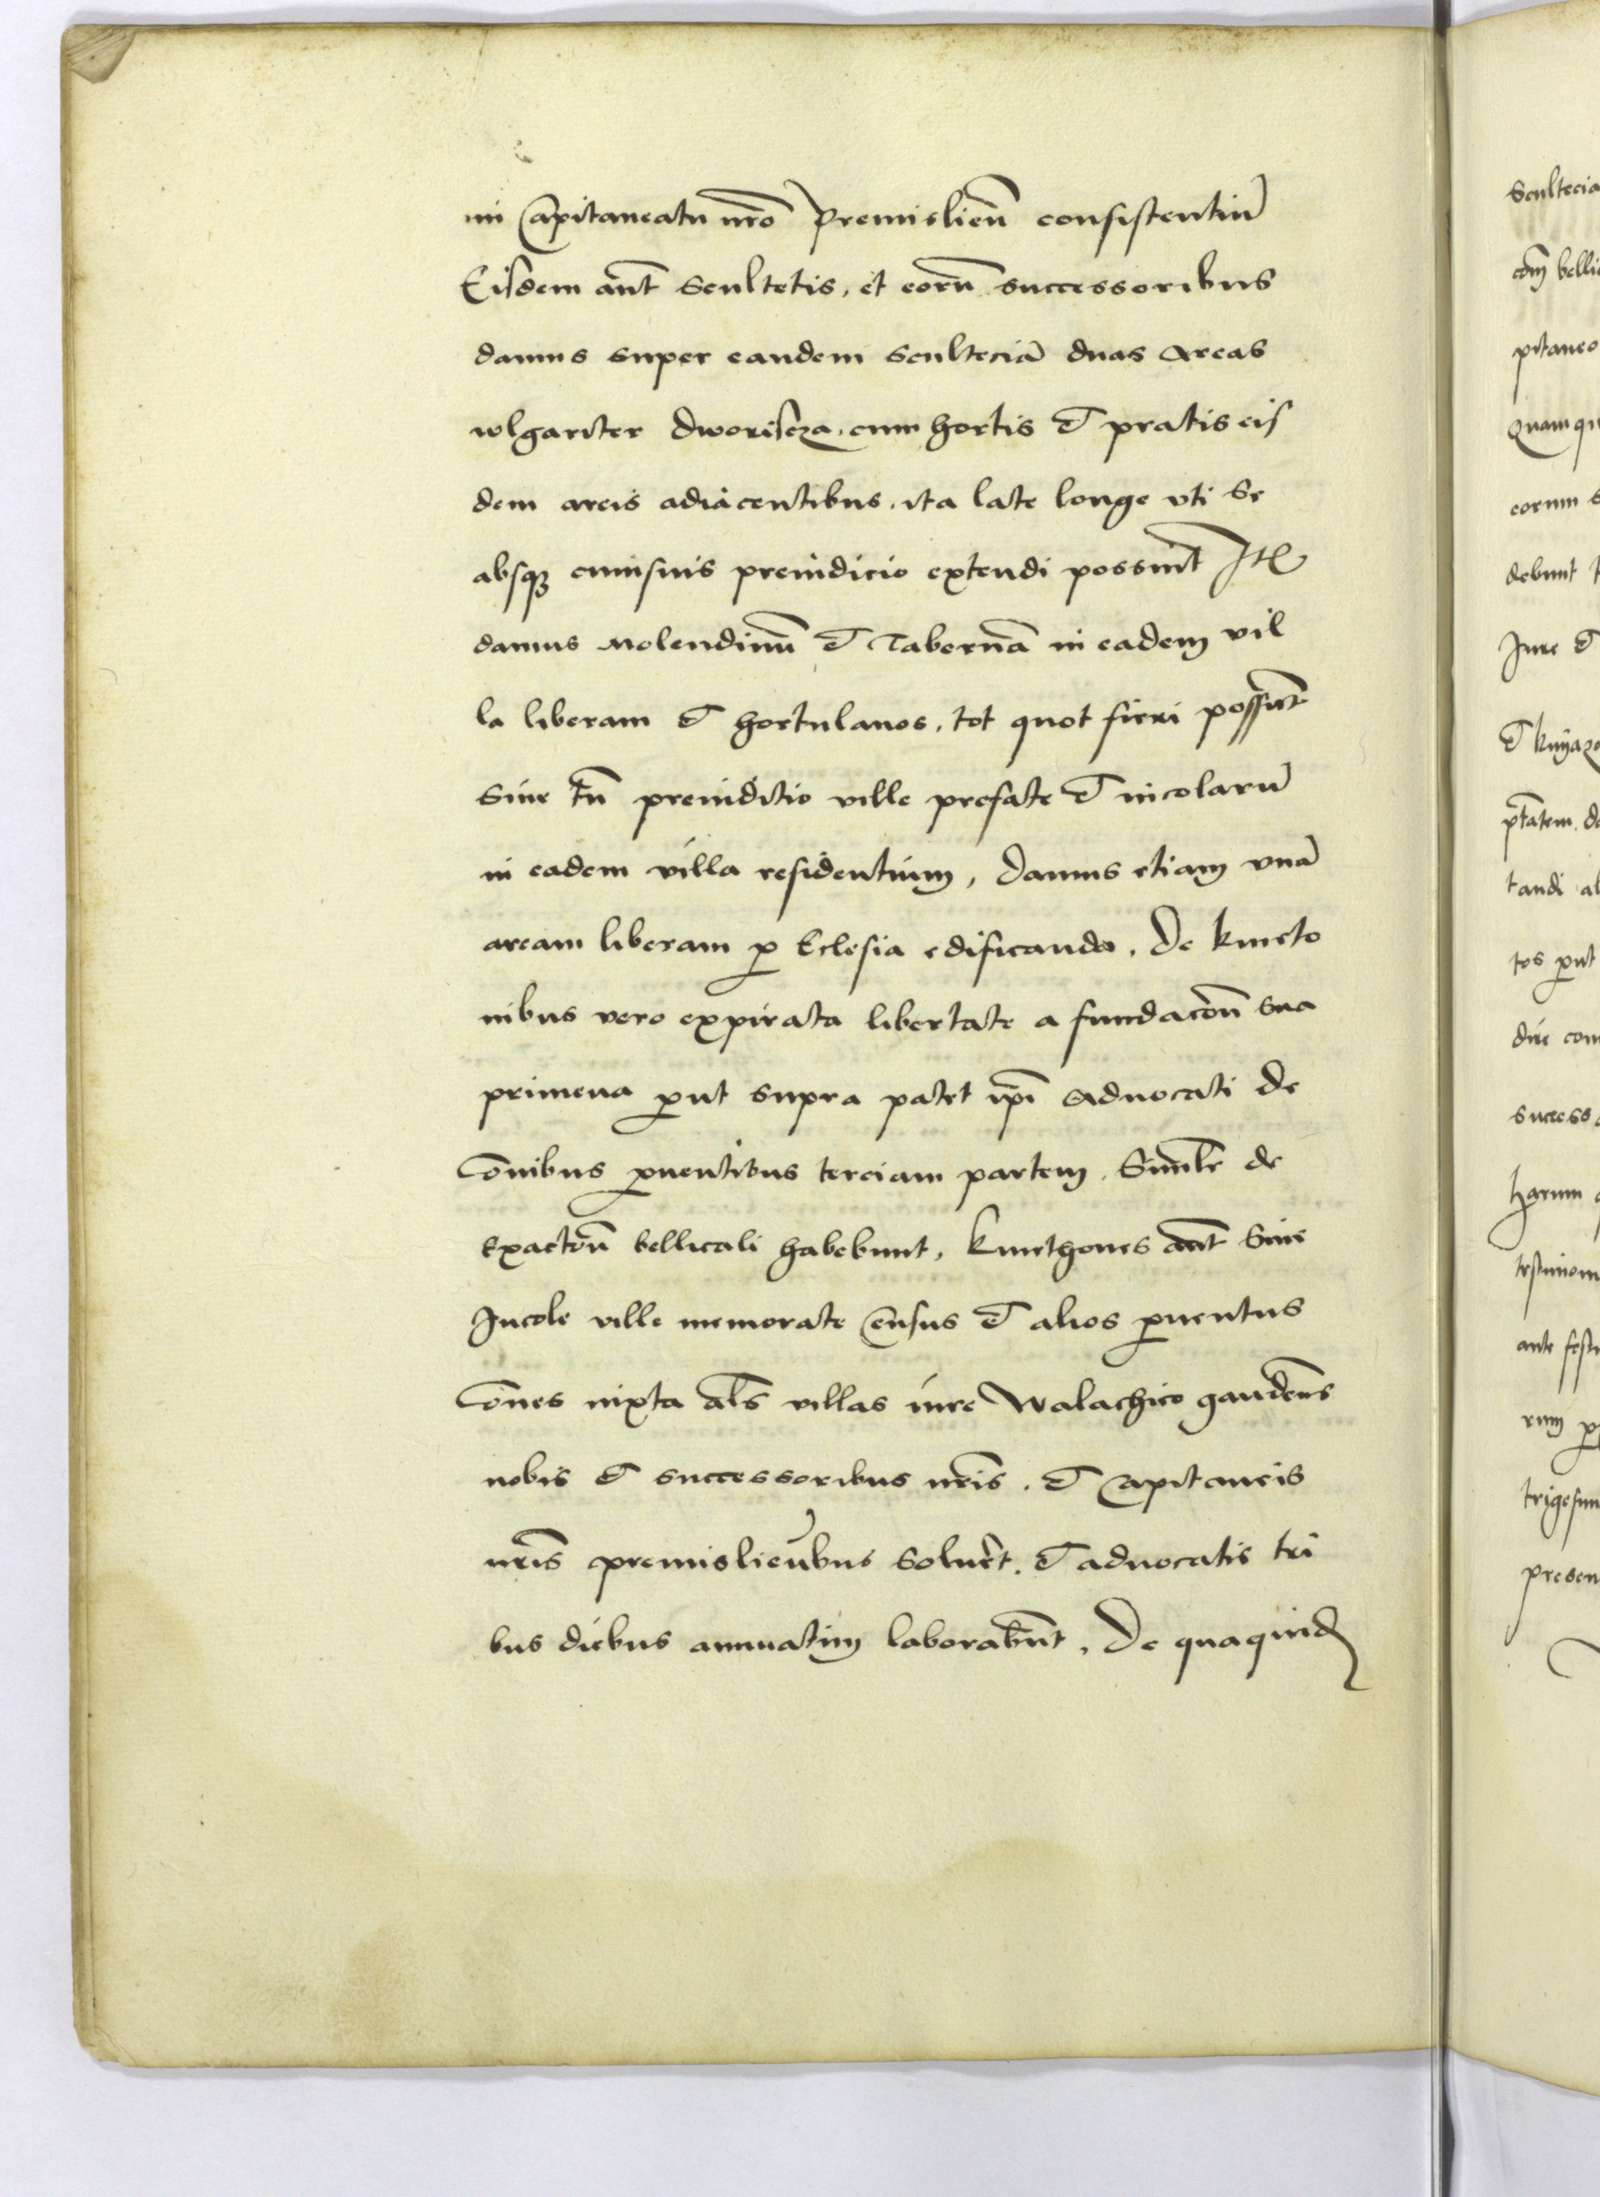 in Capitaneatu nro Premislien̄ consistentiū
Eisdem aut̄ Scultetis, et eorū successoribus
damus super eandem Sculteciā duas Areas
wlgariter dworiscza, cum hortis et pratis eis
dem areis adiacentibus, ita late longe vti se
absqꝫ cuiusuis preiudicio extendi possint Itē
damus Molendinū et Tabernā in eadem vil
la liberam et hortulanos, tot quot fieri possint
Sine tn̄ preiuditio ville prefate et incolarū
in eadem villa residentium, Damus etiam vnā
aream liberam ꝓ Eclesia edificanda, De kmeto
nibus vero expirata libertate a fundacōn̄ sua
primeua ꝓut supra patet ip̄i Aduocati de
Om̄ibus ꝓuentibus terciam partem, Simlr̄ de
Exactōn̄ bellicali habebunt, Kmethones aut̄ Siue
Incole ville memorate Cēnsus et alios ꝓuentus
Om̄es iuxta al̄s villas iure Walachico gauden̄s
nobis et successoribus nr̄is, et Capitaneis
nr̄is premislien̄bus soluēt, et aduocatis tri
bus diebus annuatim laborabūt, De quaquid̄
Scultecia
belli
pitaneo
Quamqu
eorum s
debunt
Iure et
et knyazo
ptātem, da
tandi al
tos ꝓut
dire com
success
harum
testimoni
ante festu
rum
trigesim
presen